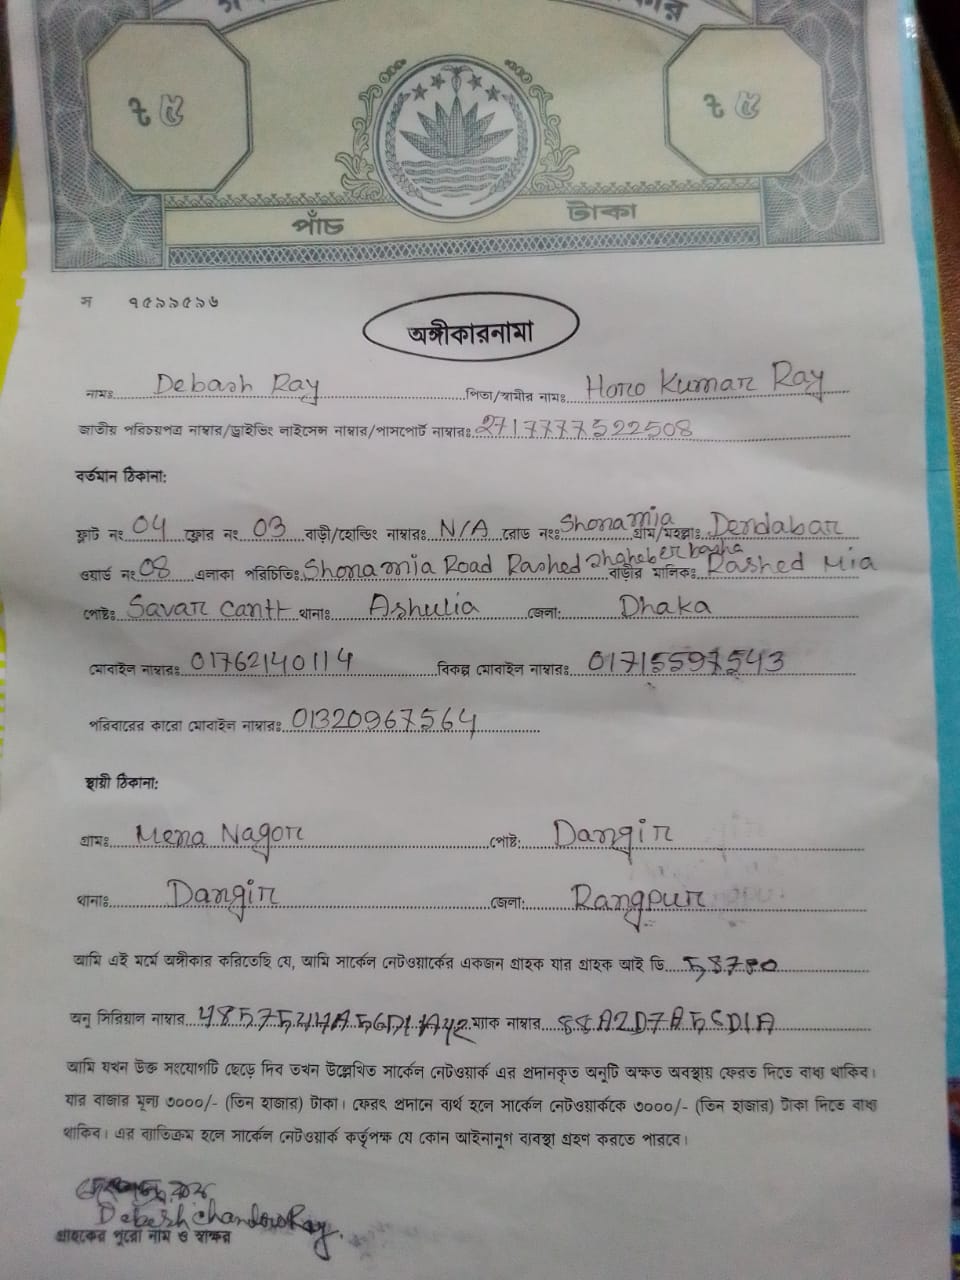 ৳ ৫ ৳ ৫
পাঁচ টাকা
স ৭৫৯৯৫৯৬
অঙ্গীকারনামা
নামঃ Debash Ray পিতা/স্বামীর নামঃ Horo Kumar Ray
জাতীয় পরিচয়পত্র নাম্বার/ড্রাইভিং লাইসেন্স নাম্বার/পাসপোর্ট নাম্বারঃ 2717777522508
বর্তমান ঠিকানা:
ফ্লাট নং 04 ফ্লোর নং 03 বাড়ী/হোল্ডিং নাম্বারঃ N/A রোড নংঃ Shonamia গ্রাম/মহল্লাঃ Dendabar
ওয়ার্ড নং 08 এলাকা পরিচিতিঃ Shonamia Road Rashed বাড়ীর মালিকঃ Rashed Mia
পোষ্টঃ Savar Cantt থানাঃ Ashulia জেলা: Dhaka
মোবাইল নাম্বারঃ 01762140114 বিকল্প মোবাইল নাম্বারঃ 01715597543
পরিবারের কারো মোবাইল নাম্বারঃ 01320967564
স্থায়ী ঠিকানা:
গ্রামঃ Mena Nagor পোষ্ট: Dangir
থানাঃ Dangir জেলা: Rangpur
আমি এই মর্মে অঙ্গীকার করিতেছি যে, আমি সার্কেল নেটওয়ার্কের একজন গ্রাহক যার গ্রাহক আই ডি
অনু সিরিয়াল নাম্বার ম্যাক নাম্বার
আমি যখন উক্ত সংযোগটি ছেড়ে দিব তখন উল্লেখিত সার্কেল নেটওয়ার্ক এর প্রদানকৃত অনুটি অক্ষত অবস্থায় ফেরত দিতে বাধ্য থাকিব।
যার বাজার মূল্য ৩০০০/- (তিন হাজার) টাকা। ফেরৎ প্রদানে ব্যর্থ হলে সার্কেল নেটওয়ার্ককে ৩০০০/- (তিন হাজার) টাকা দিতে বাধ্য
থাকিব। এর ব্যতিক্রম হলে সার্কেল নেটওয়ার্ক কর্তৃপক্ষ যে কোন আইনানুগ ব্যবস্থা গ্রহণ করতে পারবে।
Debesh Chandro Ray.
গ্রাহকের পুরো নাম ও স্বাক্ষর